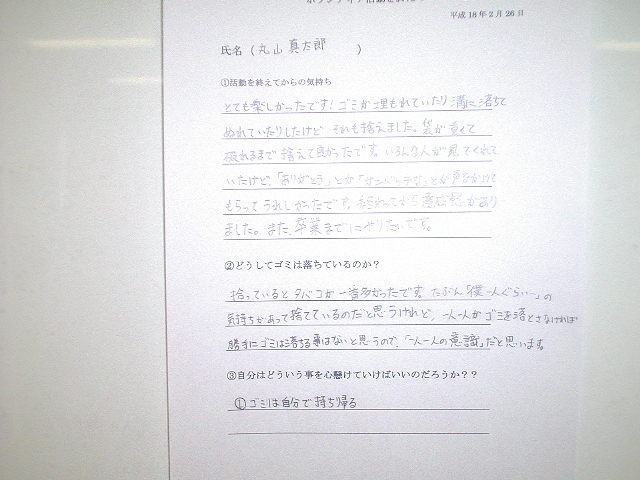 ボランティア活動を終えて
平成18年2月26日
氏名（丸山 真太郎　　）
①活動を終えてからの気持ち
とても楽しかったです！ゴミが埋もれていたり溝に落ちて
ぬれていたりしたけど それも拾えました。袋が重くて
破れるまで拾えて良かったです。いろんな人が見てくれて
いたけど、「ありがとう」とか「すごいですね」とか声をかけて
もらってうれしかったです。終わってから達成感があり
ました。また、卒業までにやりたいです。
②どうしてゴミは落ちているのか？
拾っているとタバコが一番多かったです。たぶん「僕一人ぐらい…」の
気持ちがあって捨てているのだと思うけれど、一人一人がゴミを落とさなければ
勝手にゴミは落ちる事はないと思うので、「一人一人の意識」だと思います。
③自分はどういう事を心懸けていけばいいのだろうか？？
①ゴミは自分で持ち帰る